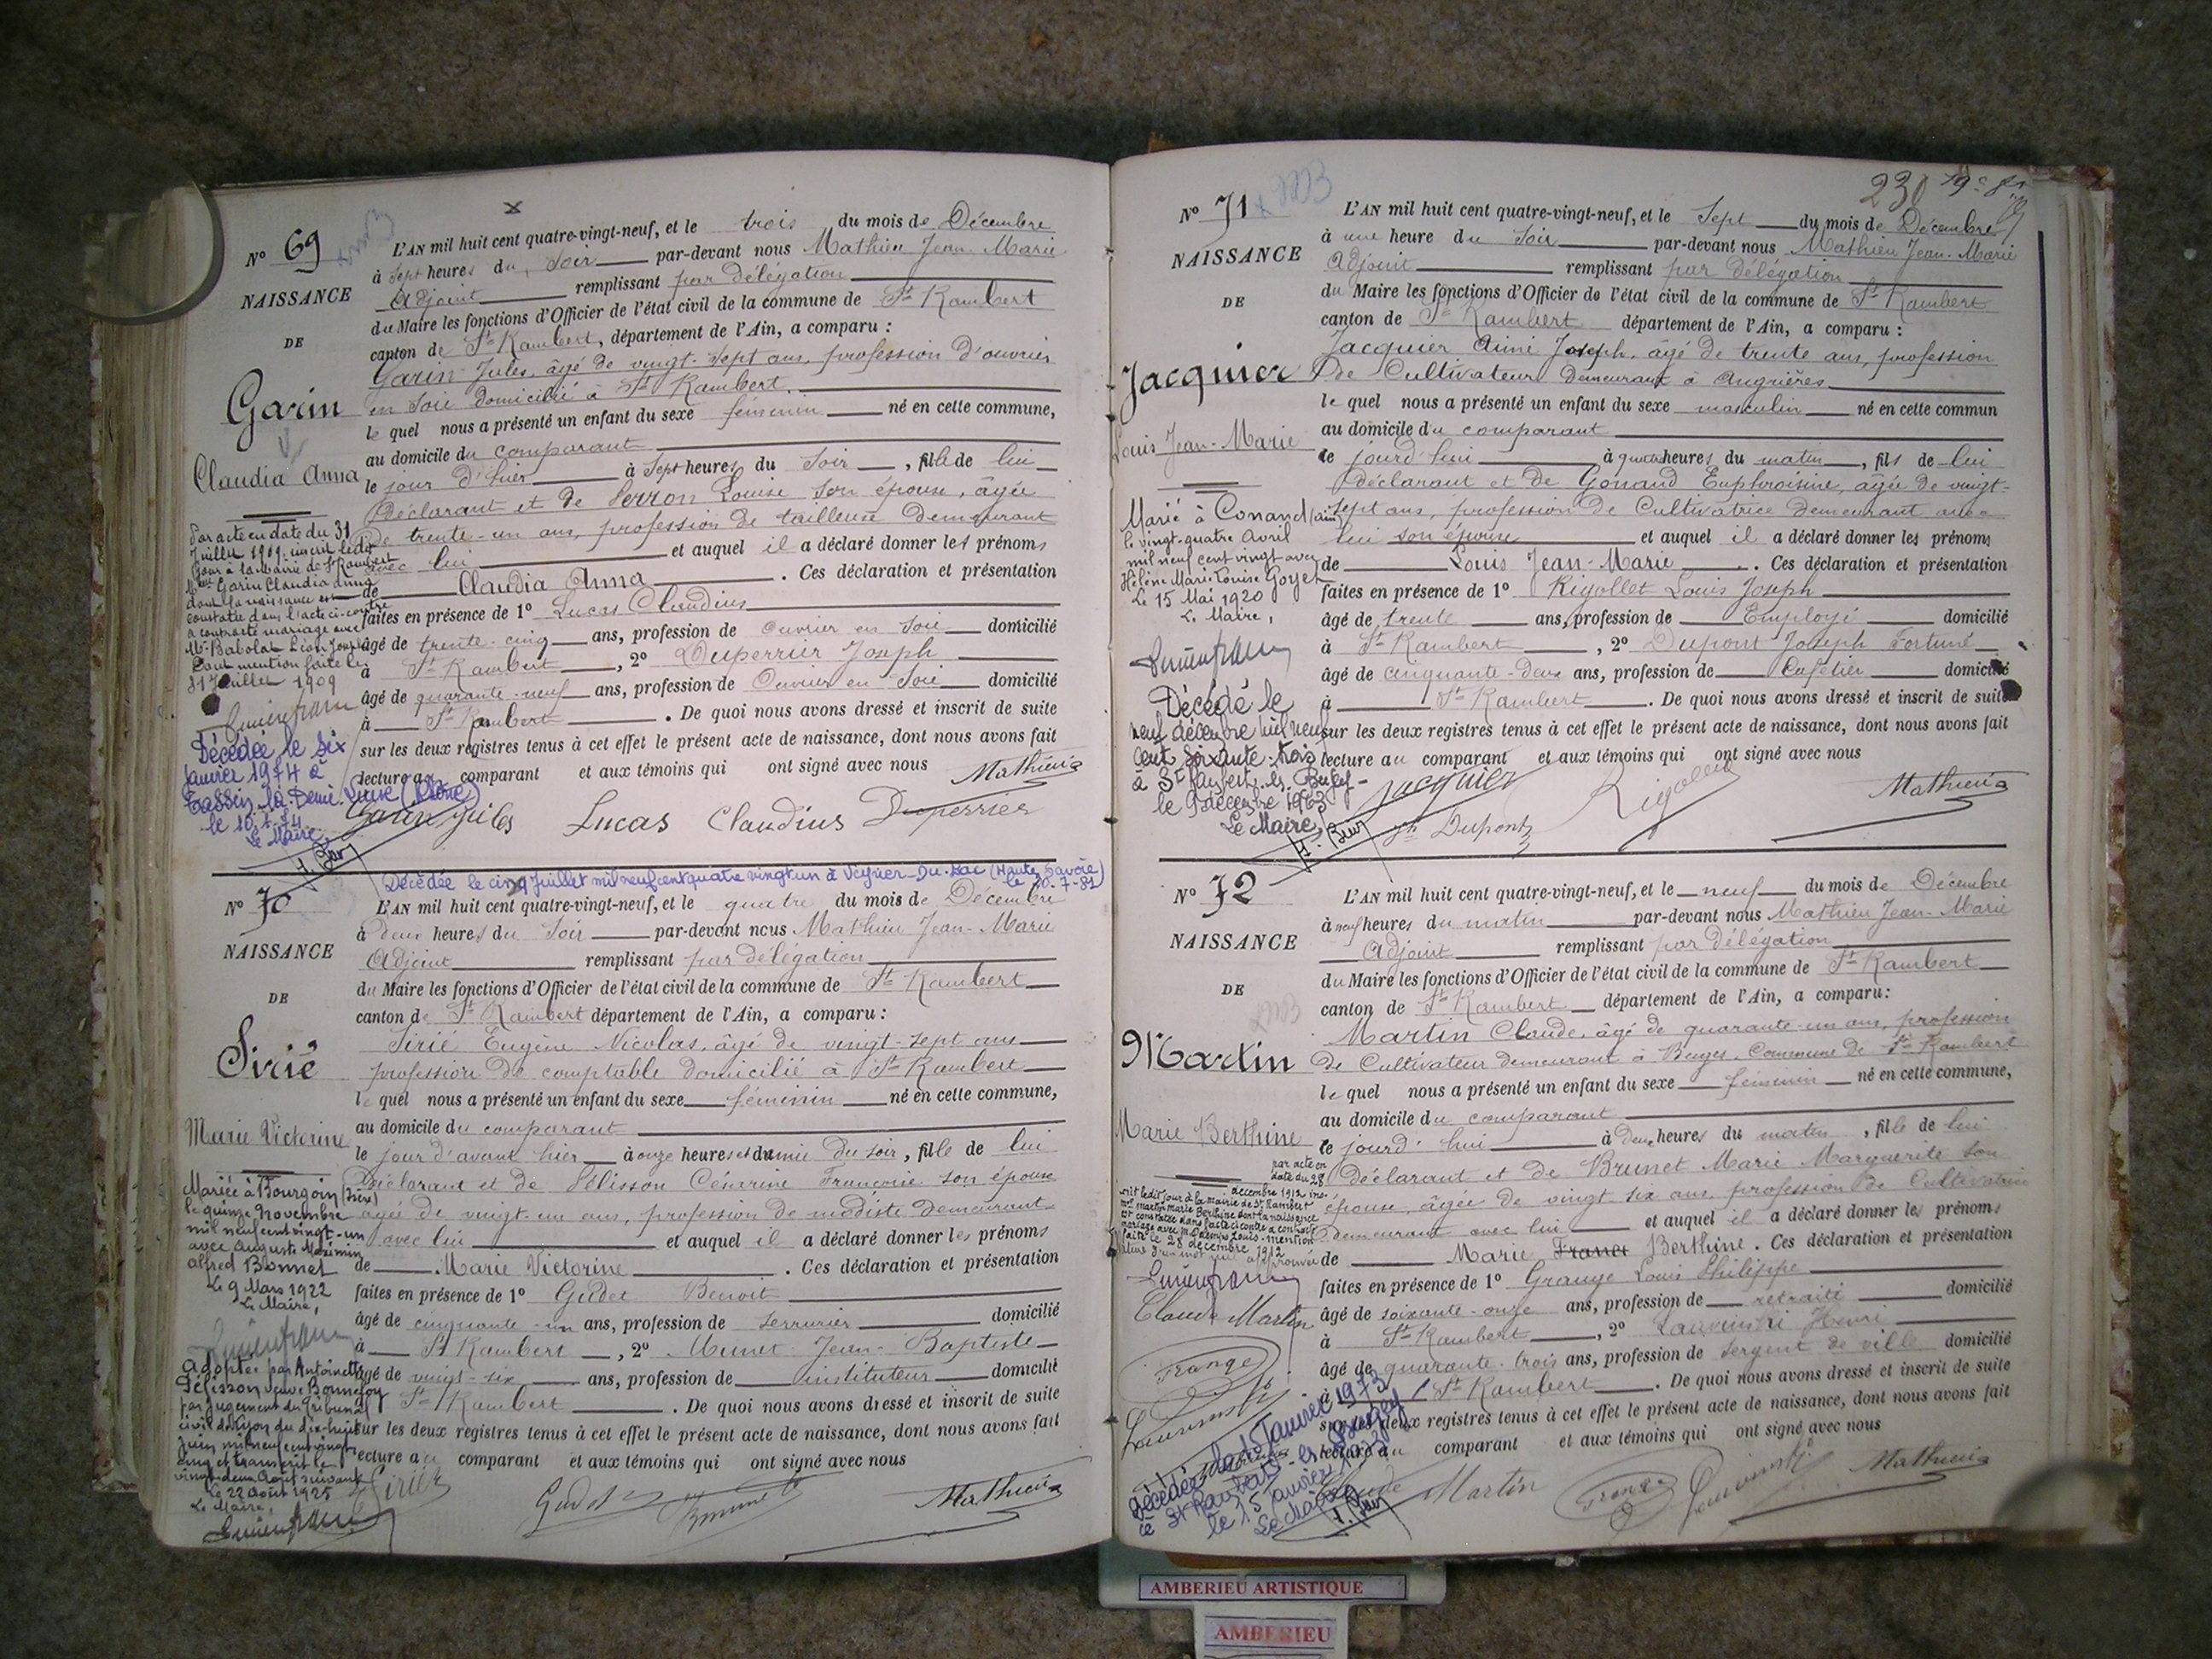 N° 69
NAISSANCE
DE
Garin
Claudia Anna
Par acte en date du 31
Juillet 1909, inscrit ledit
jour à la Mairie de St Rambert
Mme Garin Claudia Anna
dont la naissance est
constatée dans l'acte ci-contre
a contracté mariage avec
Mr Babolat Léon Joseph
Dont mention faite le
31 Juillet 1909
Décédée le six
janvier 1974 à
Tassin-la-Demi-Lune (Rhône)
le 10.1.74
Le Maire,
L'AN mil huit cent quatre-vingt-neuf, et le trois du mois de Décembre
à sept heures du soir par-devant nous Mathieu Jean-Marie
Adjoint remplissant par délégation
du Maire les fonctions d'Officier de l'état civil de la commune de St Rambert
canton de St Rambert, département de l'Ain, a comparu :
Garin Jules, âgé de vingt-sept ans, profession d'ouvrier
en soie domicilié à St Rambert
le quel nous a présenté un enfant du sexe féminin né en cette commune,
au domicile du comparant
le jour d'hier à sept heures du soir, fille de lui
déclarant et de Louise son épouse, âgée
de trente-un ans, profession de tailleuse demeurant
avec lui et auquel il a déclaré donner les prénoms
de Claudia Anna. Ces déclaration et présentation
faites en présence de 1° Lucas Claudius
âgé de trente-cinq ans, profession de ouvrier en soie domicilié
à St Rambert, 2° Duperrier Joseph
âgé de quarante-neuf ans, profession de Ouvrier en soie domicilié
à St Rambert. De quoi nous avons dressé et inscrit de suite
sur les deux registres tenus à cet effet le présent acte de naissance, dont nous avons fait
lecture au comparant et aux témoins qui ont signé avec nous
Mathieu
Garin Jules Lucas Claudius Duperrier
Décédée le cinq Juillet mil neuf cent quatre vingt un à Veyrier-Du-Lac (Haute Savoie)
le 10-7-81
N° 70
NAISSANCE
DE
Sirié
Marie Victorine
Mariée à Bourgoin (Isère)
le quinze Novembre
mil neuf cent vingt-un
avec Auguste Maximin
Alfred Bonnet
Le 9 Mars 1922
Le Maire,
Adoptée par Antoinette
Pélisson veuve Bonnefoy
par jugement du Tribunal
civil de Lyon du dix-huit
Juin mil neuf cent vingt
cinq et transcrit le
vingt deux Août suivant
Le 22 Août 1925
Le Maire,
L'AN mil huit cent quatre-vingt-neuf, et le quatre du mois de Décembre
à deux heures du soir par-devant nous Mathieu Jean-Marie
Adjoint remplissant par délégation
du Maire les fonctions d'Officier de l'état civil de la commune de St Rambert
canton de St Rambert département de l'Ain, a comparu :
Sirié Eugène Nicolas, âgé de vingt-sept ans
profession de comptable domicilié à St Rambert
le quel nous a présenté un enfant du sexe féminin né en cette commune,
au domicile du comparant
le jour d'avant hier à onze heures et demie du soir, fille de lui
déclarant et de Pélisson Césarine Françoise son épouse
âgée de vingt-un ans, profession de modiste demeurant
avec lui et auquel il a déclaré donner les prénoms
de Marie Victorine. Ces déclaration et présentation
faites en présence de 1° Gudet Benoit
âgé de cinquante-un ans, profession de serrurier domicilié
à St Rambert, 2° Jean-Baptiste
âgé de vingt-six ans, profession de instituteur domicilié
St Rambert. De quoi nous avons dressé et inscrit de suite
sur les deux registres tenus à cet effet le présent acte de naissance, dont nous avons fait
lecture au comparant et aux témoins qui ont signé avec nous
Mathieu
230
N° 71
NAISSANCE
DE
Jacquier
Louis Jean-Marie
Marié à Conand (Ain)
le vingt-quatre Avril
mil neuf cent vingt avec
Hélène Marie Louise Goyet
Le 15 Mai 1920
Le Maire,
Décédé le
neuf décembre mil neuf
cent soixante-trois
à St Rambert-en-Bugey
le 9 décembre 1963
Le Maire,
L'AN mil huit cent quatre-vingt-neuf, et le sept du mois de Décembre
à une heure du soir par-devant nous Mathieu Jean-Marie
Adjoint remplissant par délégation
du Maire les fonctions d'Officier de l'état civil de la commune de St Rambert
canton de St Rambert département de l'Ain, a comparu :
Jacquier Aimé Joseph, âgé de trente ans, profession
de Cultivateur demeurant à Angrières
le quel nous a présenté un enfant du sexe masculin né en cette commun
au domicile du comparant
le jourd'hui à quatre heures du matin, fils de lui
déclarant et de Gonand Euphroisine, âgée de vingt-
sept ans, profession de Cultivatrice demeurant avec
lui son épouse et auquel il a déclaré donner les prénoms
de Louis Jean-Marie. Ces déclaration et présentation
faites en présence de 1° Rigollet Louis Joseph
âgé de trente ans, profession de Employé domicilié
à St Rambert, 2° Dupont Joseph Fortuné
âgé de cinquante-deux ans, profession de Cafetier domicilié
à St Rambert. De quoi nous avons dressé et inscrit de suite
sur les deux registres tenus à cet effet le présent acte de naissance, dont nous avons fait
lecture au comparant et aux témoins qui ont signé avec nous
Jacquier Rigollet Mathieu
Dupont
N° 72
NAISSANCE
DE
Martin
Marie Berthine
par acte en
date du 28
décembre 1912 ins-
crit ledit jour à la mairie de St Rambert
Mme Martin Marie Berthine dont la naissance
est constatée dans l'acte ci-contre a contracté
mariage avec M. Louis. mention
faite le 28 décembre 1912
Claude Martin
L'AN mil huit cent quatre-vingt-neuf, et le neuf du mois de Décembre
à neuf heures du matin par-devant nous Mathieu Jean-Marie
Adjoint remplissant par délégation
du Maire les fonctions d'Officier de l'état civil de la commune de St Rambert
canton de St Rambert département de l'Ain, a comparu :
Martin Claude, âgé de quarante-un ans, profession
de Cultivateur demeurant à Commune de St Rambert
le quel nous a présenté un enfant du sexe féminin né en cette commune,
au domicile du comparant
le jourd'hui à deux heures du matin, fille de lui
déclarant et de Brunet Marie Marguerite son
épouse, âgée de vingt-six ans, profession de Cultivatrice
demeurant avec lui et auquel il a déclaré donner les prénoms
de Marie Berthine. Ces déclaration et présentation
faites en présence de 1° Grange Louis Philippe
âgé de soixante-onze ans, profession de retraité domicilié
à St Rambert, 2° Henri
âgé de quarante-trois ans, profession de sergent de ville domicilié
à St Rambert. De quoi nous avons dressé et inscrit de suite
sur les deux registres tenus à cet effet le présent acte de naissance, dont nous avons fait
lecture au comparant et aux témoins qui ont signé avec nous
Claude Martin Grange Mathieu
AMBERIEU ARTISTIQUE
AMBERIEU